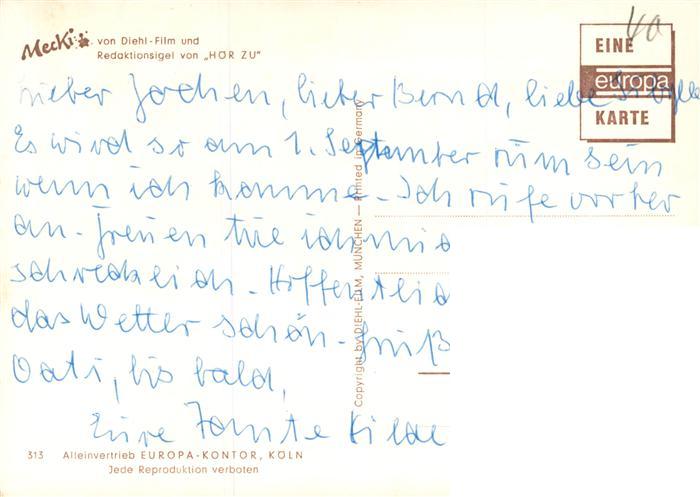 Mecki von Diehl-Film und
Redaktionsigel von „HÖR ZU"
40
EINE
europa
KARTE
Lieber Jochen, lieber Bernd, liebe
Es wird so am 1. September rum sein
wenn ich komme. Ich rufe vorher
an. Freuen tue ich mic
schrecklich. Hoffentlic
das Wetter schön. Grüß
Vati, bis bald,
Eure Tante Hilde
Copyright by DIEHL-FILM, MÜNCHEN — Printed in Germany
313 Alleinvertrieb EUROPA-KONTOR, KÖLN
Jede Reproduktion verboten